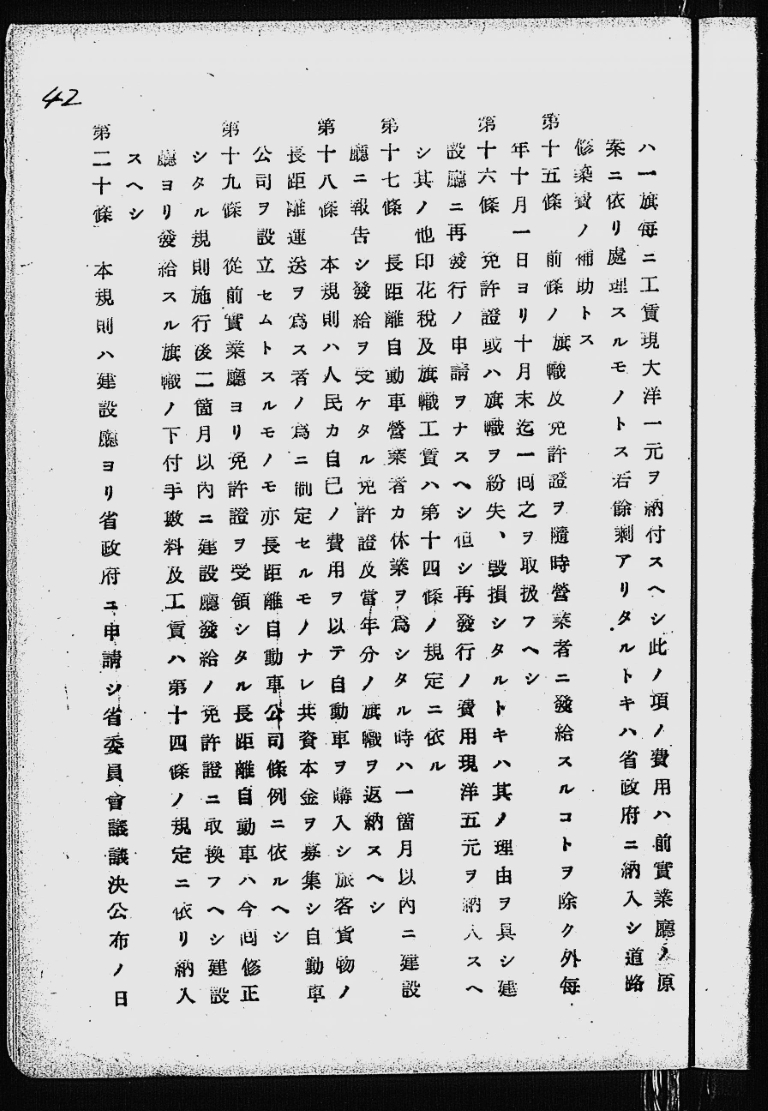 42
ハ一旗每ニ工賃現大洋一元ヲ納付スヘシ此ノ項ノ費用ハ前實業廳ノ原
案ニ依リ處理スルモノトス若餘剩アリタルトキハ省政府ニ納入シ道路
修築費ノ補助トス
第十五條　前條ノ旗幟及免許證ヲ隨時營業者ニ發給スルコトヲ除ク外每
年十月一日ヨリ十月末迄一回之ヲ取扱フヘシ
第十六條　免許證或ハ旗幟ヲ紛失、毀損シタルトキハ其ノ理由ヲ具シ建
設廳ニ再發行ノ申請ヲナスヘシ但シ再發行ノ費用現洋五元ヲ納入スヘ
シ其ノ他印花稅及旗幟工賃ハ第十四條ノ規定ニ依ル
第十七條　長距離自動車營業者カ休業ヲ爲シタル時ハ一箇月以內ニ建設
廳ニ報告シ發給ヲ受ケタル免許證及當年分ノ旗幟ヲ返納スヘシ
第十八條　本規則ハ人民カ自己ノ費用ヲ以テ自動車ヲ購入シ旅客貨物ノ
長距離運送ヲ爲ス者ノ爲ニ制定セルモノナレ共資本金ヲ募集シ自動車
公司ヲ設立セムトスルモノモ亦長距離自動車公司條例ニ依ルヘシ
第十九條　從前實業廳ヨリ免許證ヲ受領シタル長距離自動車ハ今回修正
シタル規則施行後二箇月以內ニ建設廳發給ノ免許證ニ取換フヘシ建設
廳ヨリ發給スル旗幟ノ下付手數料及工賃ハ第十四條ノ規定ニ依リ納入
スヘシ
第二十條　本規則ハ建設廳ヨリ省政府ニ申請シ省委員會議議決公布ノ日